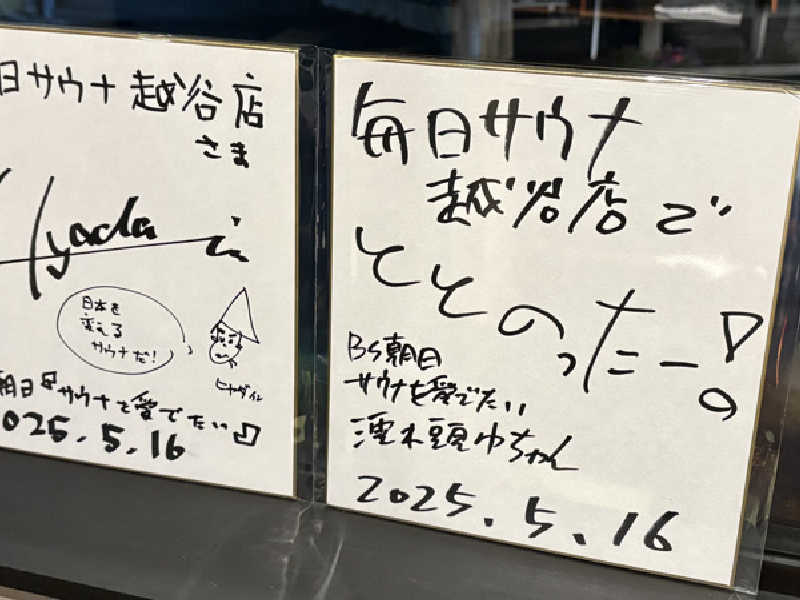 日サウナ 越谷店
さま
日本を
変える
サウナだ!
ヒャダイン
朝日『サウナを愛でたい』
2025.5.16
毎日サウナ
越谷店で
ととのったー!
BS朝日
サウナを愛でたい
濡れ頭巾ちゃん
2025.5.16